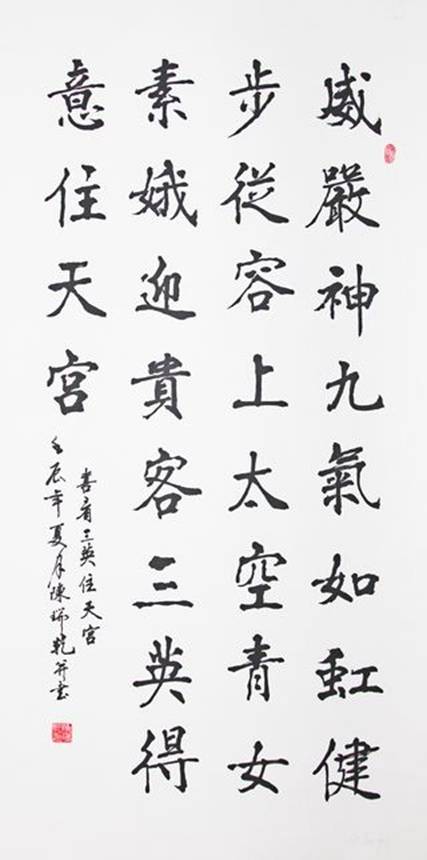 威嚴神九氣如虹健
步從容上太空青女
素娥迎貴客三英得
意住天宮
喜看三英住天宮
壬辰年夏月陳瑞乾并書